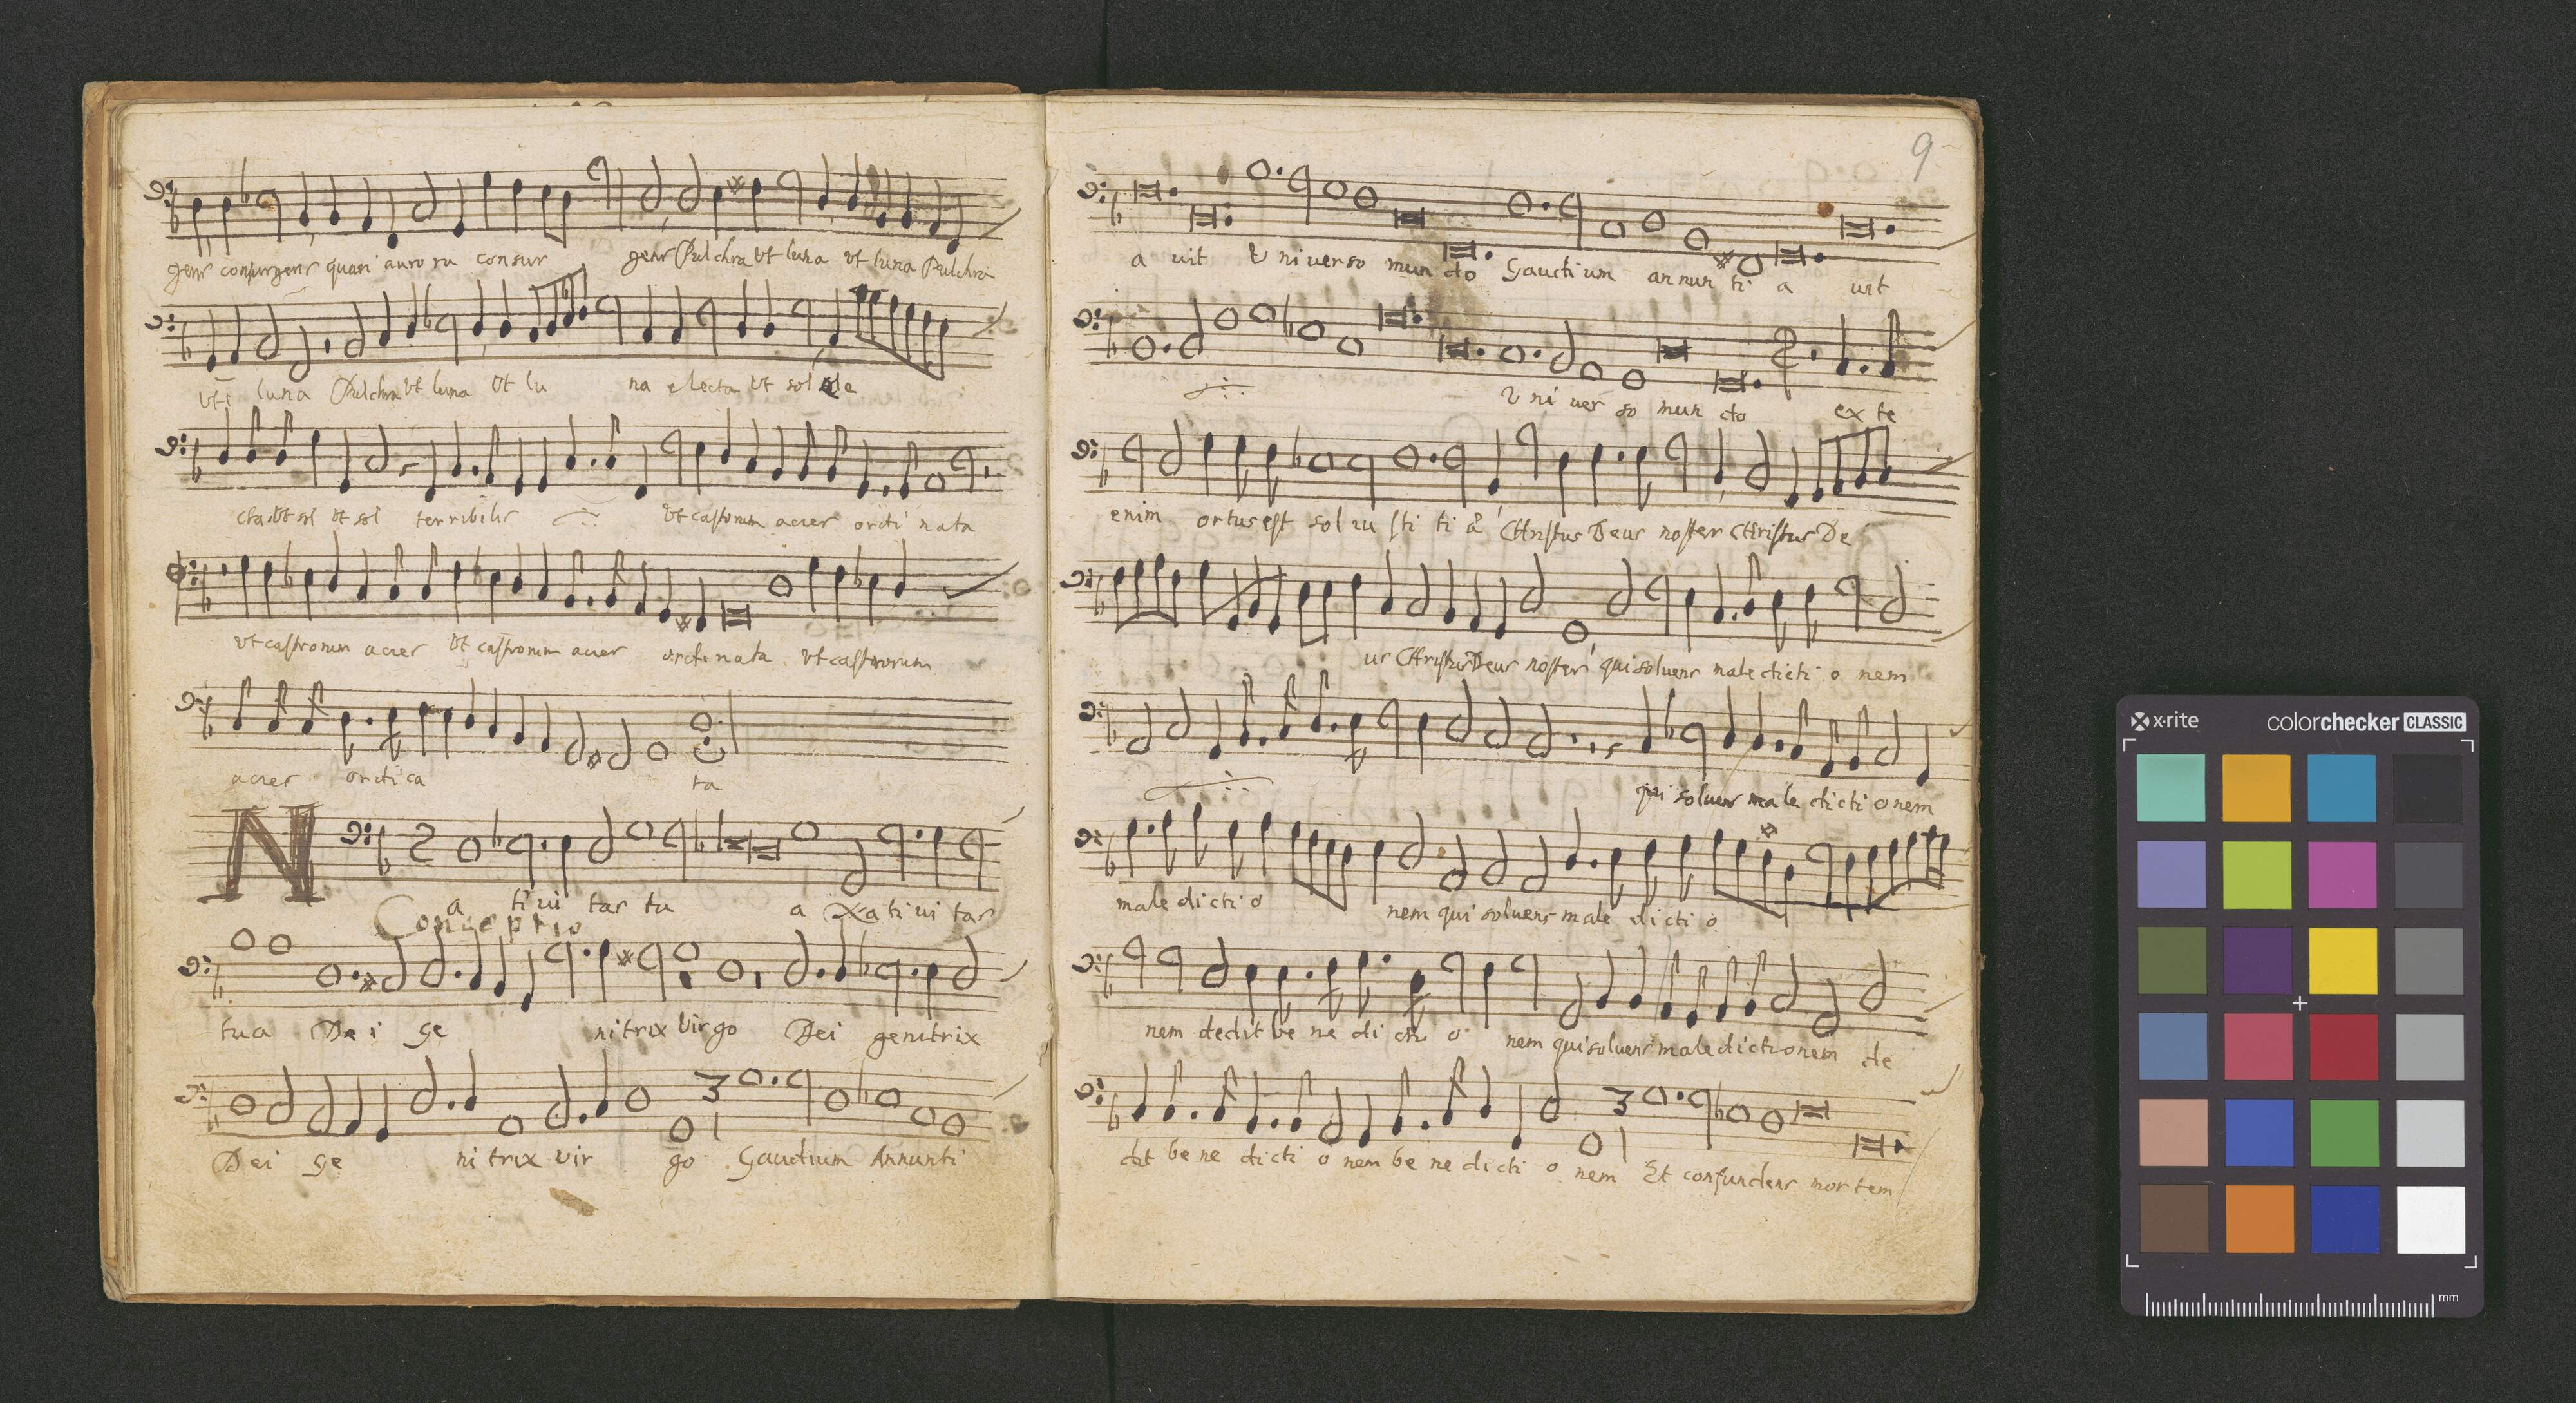 gens consurgens quasi aurora consur gens Pulchra Vt luna Vt luna Pulchra
Vt luna Pulchra Vt luna Vt lu na electa Vt sol ele
cta Vt sol Vt sol terribilis Vt castrorum acies ordi nata
Vt castrorum acies Vt castrorum acies ordinata Vt castrorum
acies ordi ca ta
N a ti ui tas tu a Natiui tas
Conceptio
tua De i ge nitrix Virgo Dei genitrix
Dei ge ni trix vir go Gaudium Annunti
9
a uit Vniuerso mun do Gaudium annun ti a uit
V ni uer so mun do ex te
enim ortus est sol iu sti ti æ CHristus Deus noster CHristus De
us CHristus Deus noster qui soluens maledicti o nem
qui soluens male dictionem
male dicti o nem qui soluens male dicti o
nem dedit be ne di cti o nem qui soluens maledictionem de
dit be ne dicti o nem be ne dicti o nem Et confundens mortem
3
1
3
1
x-rite colorchecker CLASSIC
mm